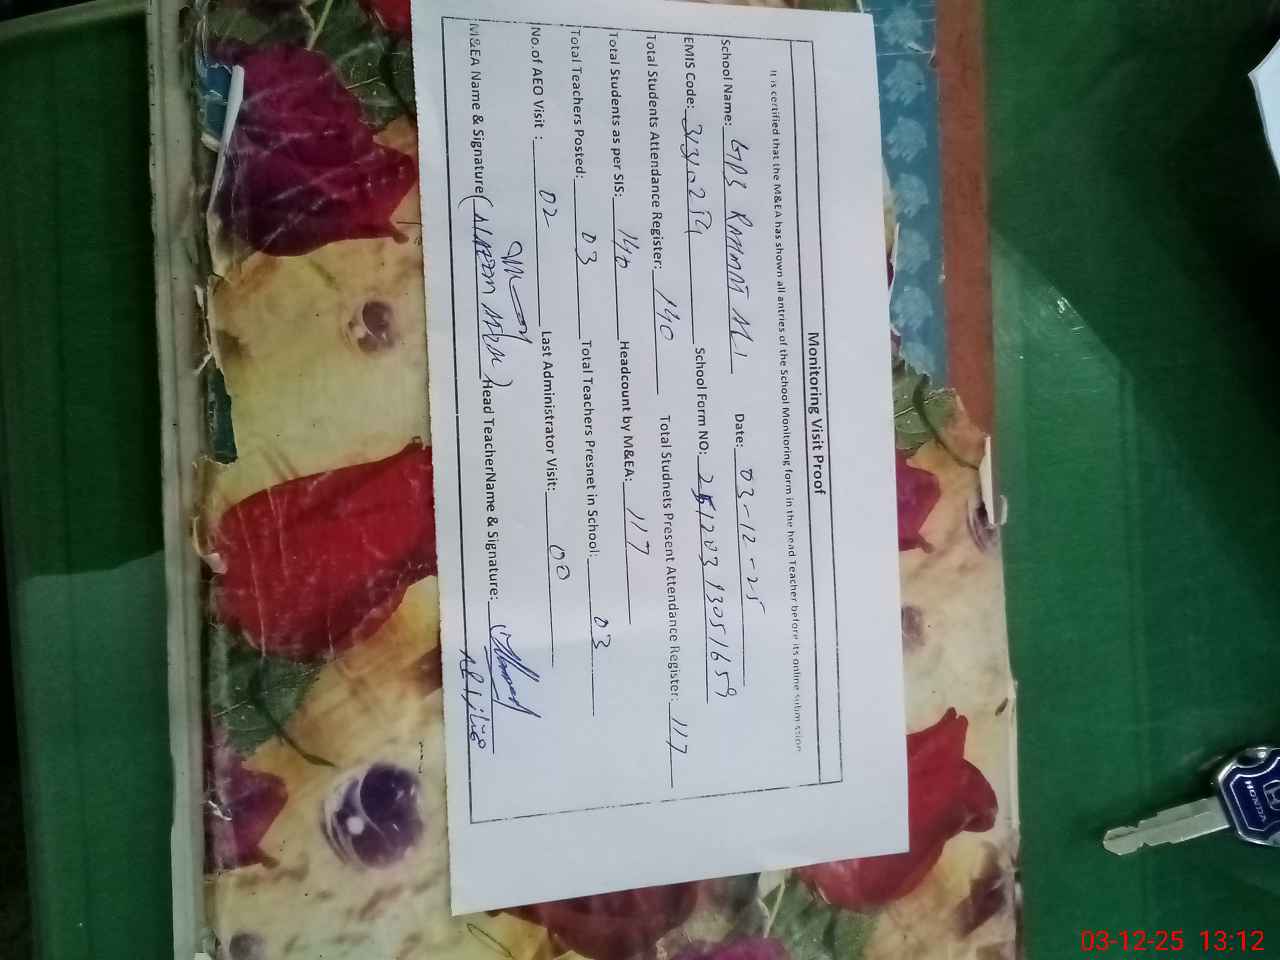 Monitoring Visit Proof
It is certified that the M&EA has shown all antries of the School Monitoring form in the head Teacher before its online submission
School Name: GPS RAHMAT ALI Date: 03-12-25
EMIS Code: 31310254 School Form NO: 25120313051659
Total Students Attendance Register: 140 Total Studnets Present Attendance Register: 117
Total Students as per SIS: 140 Headcount by M&EA: 117
Total Teachers Posted: 03 Total Teachers Presnet in School: 03
No.of AEO Visit : 02 Last Administrator Visit: 00
M&EA Name & Signature Head TeacherName & Signature:
HONDA
03-12-25 13:12